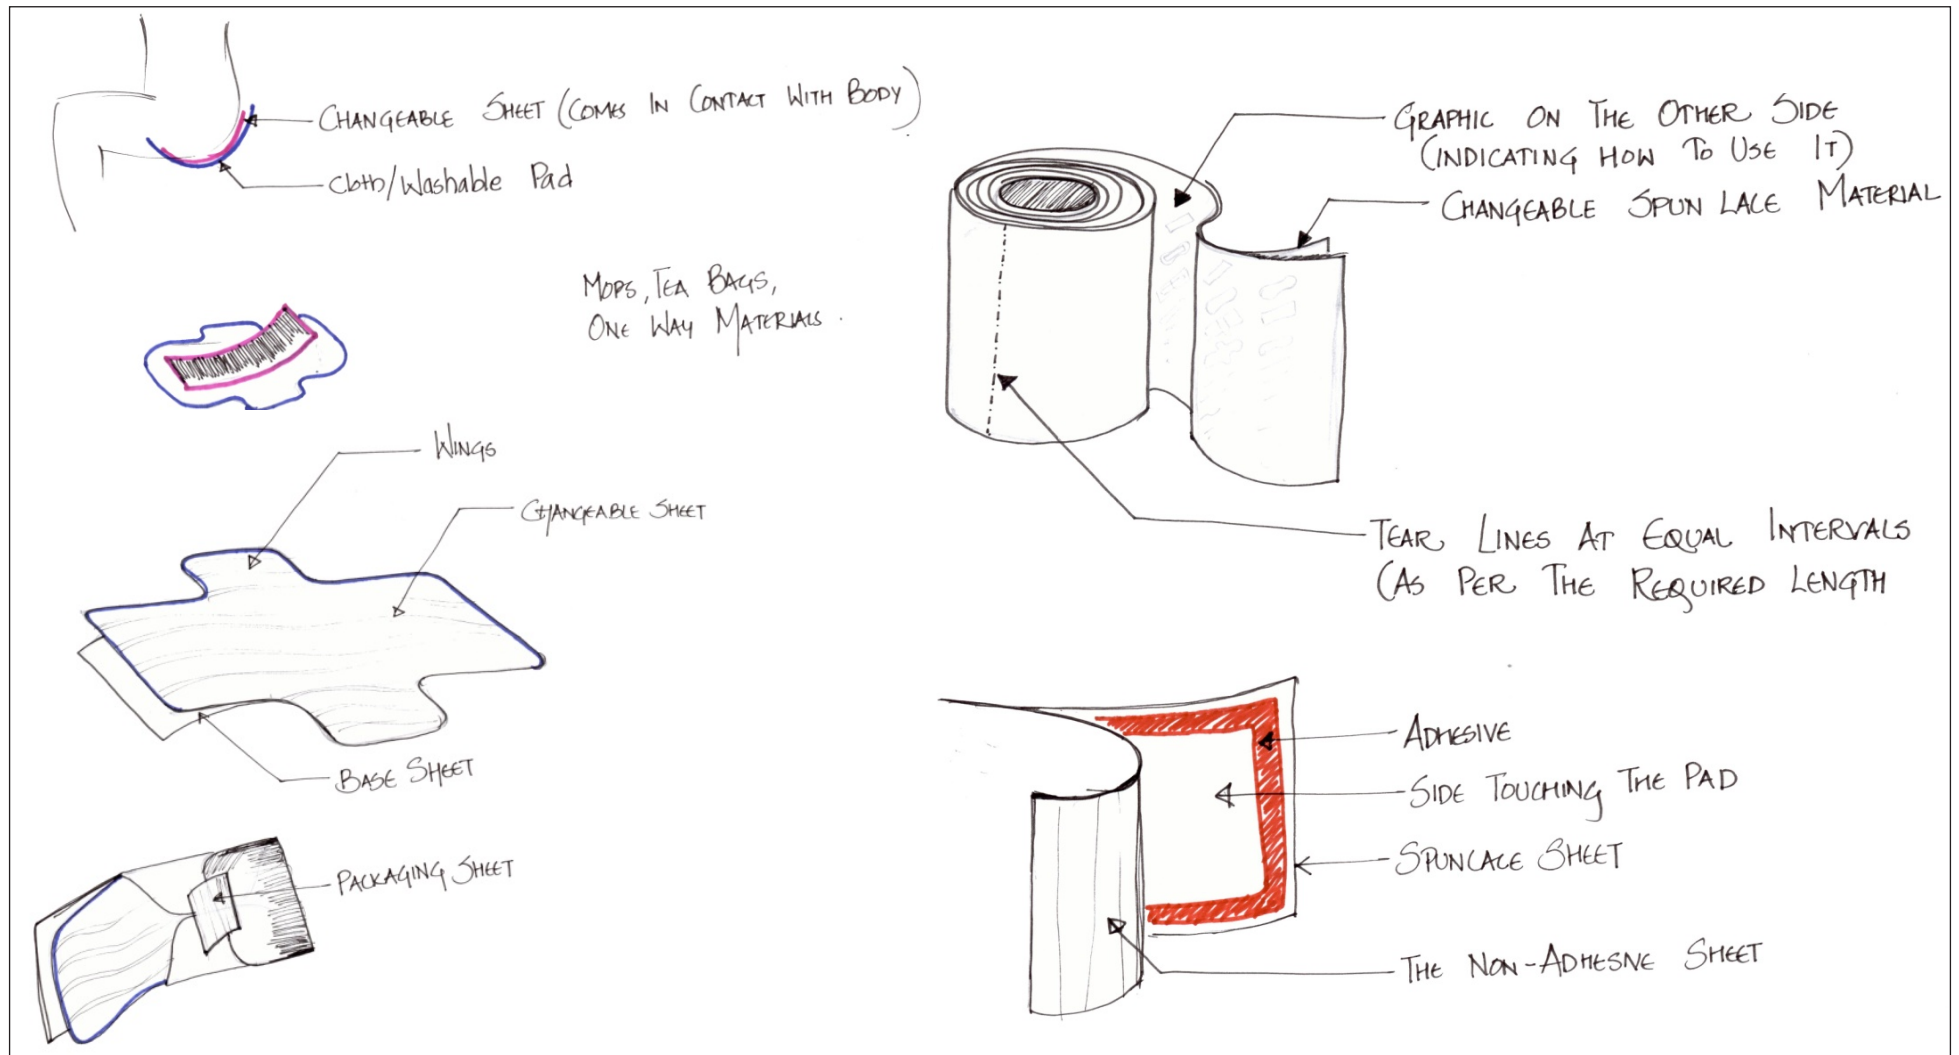 CHANGEABLE SHEET (COMES IN CONTACT WITH BODY)
Cloth/Washable Pad
MOPS, TEA BAGS,
ONE WAY MATERIALS.
WINGS
CHANGEABLE SHEET
BASE SHEET
PACKAGING SHEET
GRAPHIC ON THE OTHER SIDE
(INDICATING HOW TO USE IT)
CHANGEABLE SPUN LACE MATERIAL
TEAR LINES AT EQUAL INTERVALS
(AS PER THE REQUIRED LENGTH
ADHESIVE
SIDE TOUCHING THE PAD
SPUNLACE SHEET
THE NON-ADHESIVE SHEET